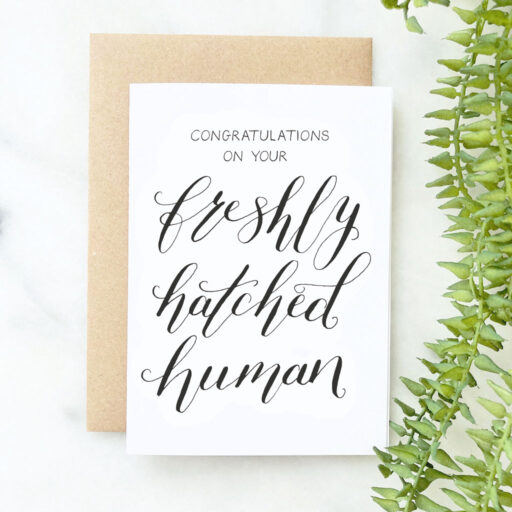 CONGRATULATIONS
ON YOUR
freshly
hatched
human